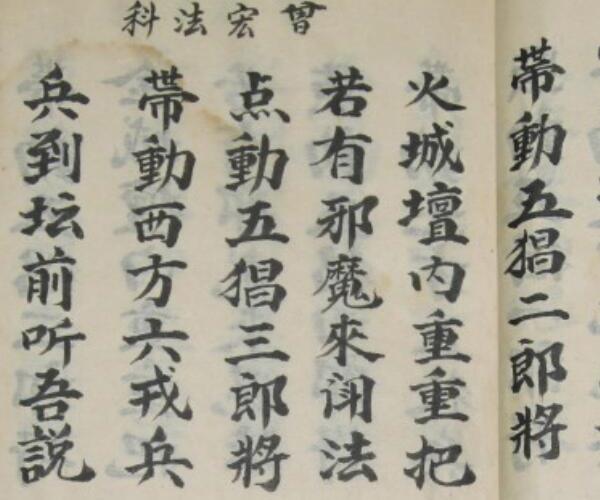 帶動五猖二郎將
曾宏法科
火城壇内重重把
若有邪魔來法
点動五猖三郎將
帶動西方六戎兵
兵到坛前听吾説